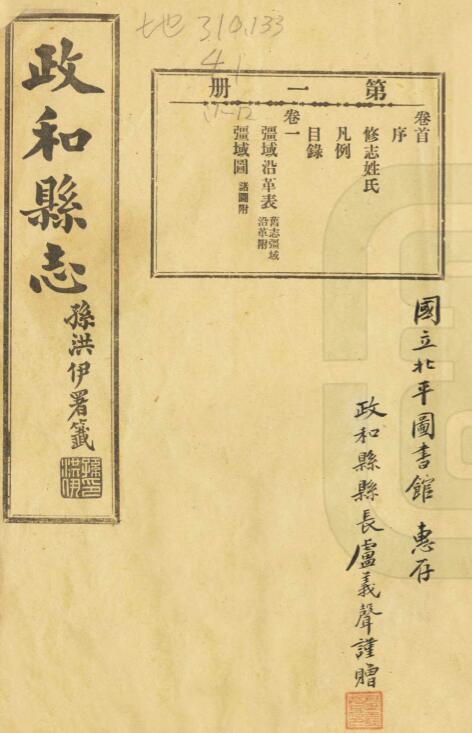 地310.133
41
1-12
政和縣志
孫洪伊署籤
孫洪伊印
第一册
卷首
序
修志姓氏
凡例
目錄
卷一
彊域沿革表 舊志彊域沿革附
彊域圖 諸圖附
國立北平圖書館 惠存
政和縣縣長盧義聲謹贈